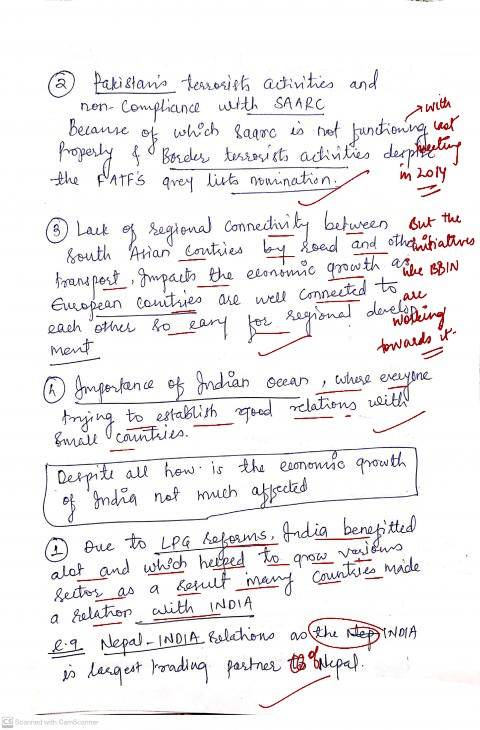 ② Pakistan's terrorists activities and
non-Compliance with SAARC
Because of which Saarc is not functioning
Property & Border terrorists activities despite
the FATF'S grey lists nomination.
with
last
meeting
in 2014
③ Lack of regional connectivity between
South Asian Contries by road and other
transport, Impacts the economic growth as
European countries are well connected to
each other so easy for regional develop
ment
But the
initiatives
like BBIN
are
working
towards it.
④ Importance of Indian ocean, where everyone
trying to establish good relations with
Small countries.
Despite all how is the economic growth
of India not much affected
① Due to LPG reforms, India benefitted
alot and which helped to grow various
Sector as a result many Countries made
a relation with INDIA
e.g Nepal-INDIA Relations as the Nep INDIA
is largest trading partner of Nepal.
CS Scanned with CamScanner